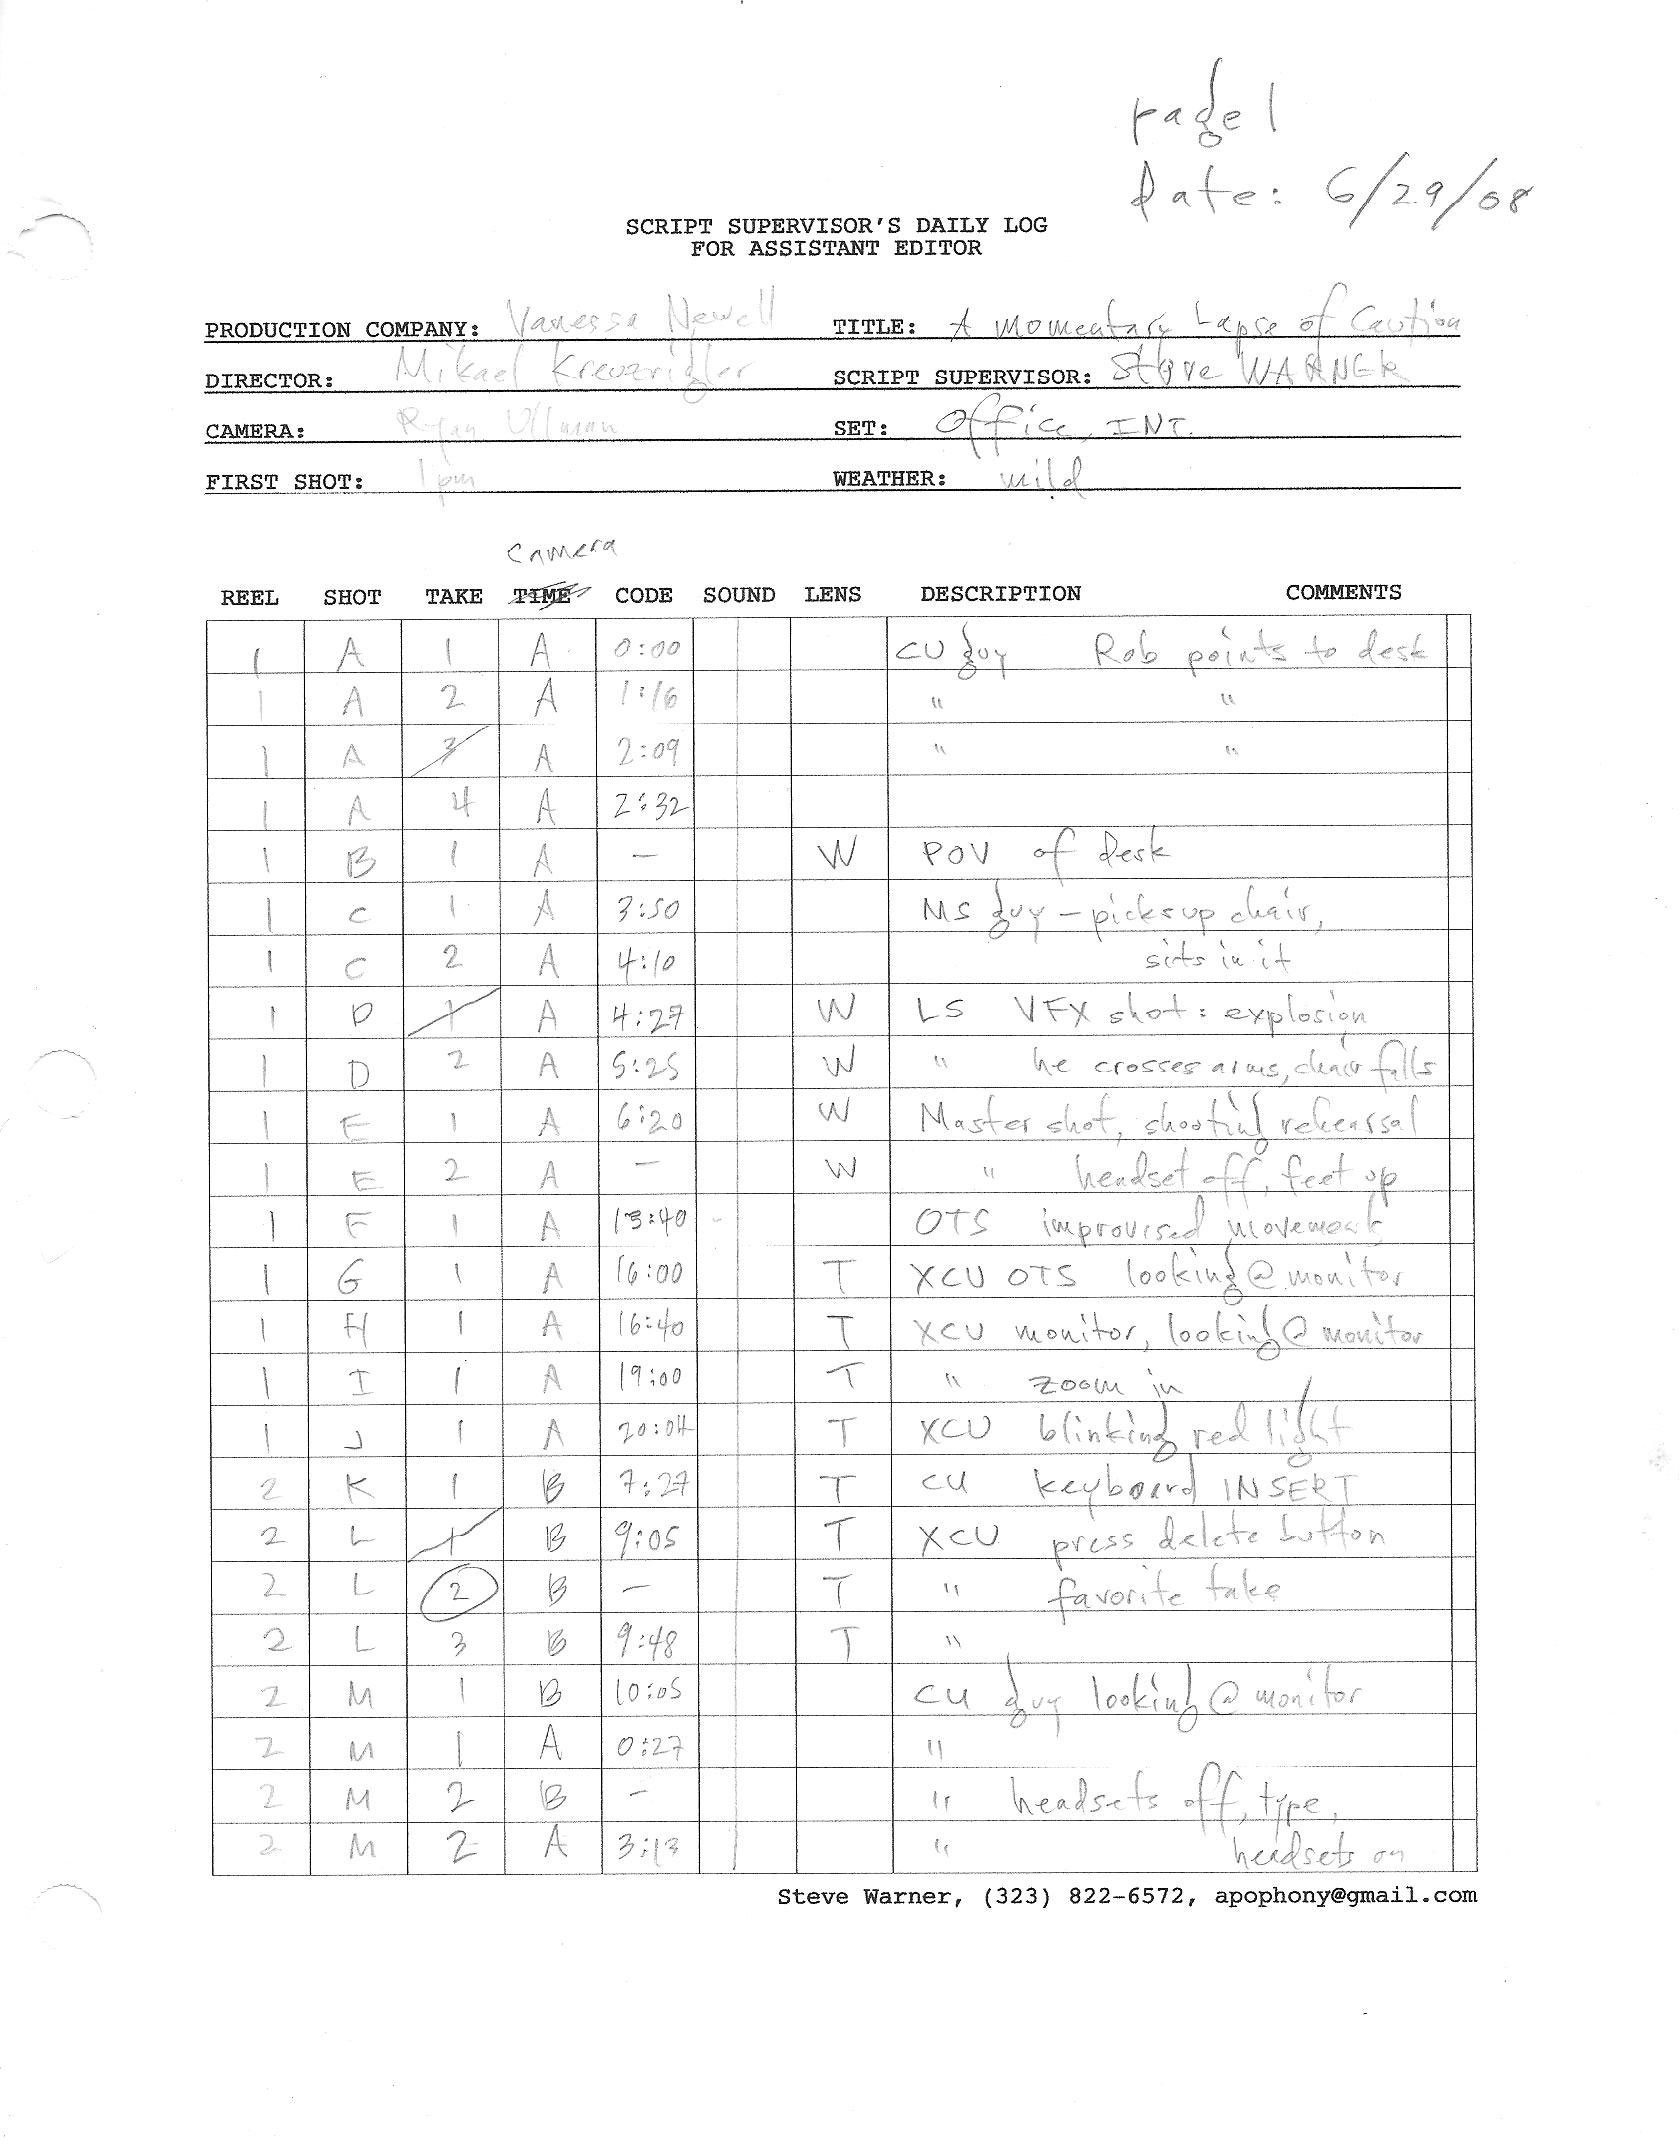 page 1
Date: 6/29/08
SCRIPT SUPERVISOR'S DAILY LOG
FOR ASSISTANT EDITOR
PRODUCTION COMPANY: Vanessa Newell TITLE: A Momentary Lapse of Caution
DIRECTOR: Mikael SCRIPT SUPERVISOR: Steve WARNER
CAMERA: Ryan Ullman SET: Office, INT.
FIRST SHOT: 1pm WEATHER: mild
Camera
REEL SHOT TAKE TIME CODE SOUND LENS DESCRIPTION COMMENTS
1 A 1 A 0:00 CU guy Rob points to desk
1 A 2 A 1:16 " "
1 A 3 A 2:09 " "
1 A 4 A 2:32
1 B 1 A — W POV of desk
1 C 1 A 3:50 MS guy – picks up chair,
1 C 2 A 4:10 sits in it
1 D 1 A 4:27 W LS VFX shot: explosion
1 D 2 A 5:25 W " he crosses arms, chair falls
1 E 1 A 6:20 W Master shot, shooting rehearsal
1 E 2 A — W " headset off, feet up
1 F 1 A 13:40 - OTS improvised movement
1 G 1 A 16:00 T XCU OTS looking @ monitor
1 H 1 A 16:40 T XCU monitor, looking @ monitor
1 I 1 A 19:00 T " zoom in
1 J 1 A 20:04 T XCU blinking red light
2 K 1 B 7:27 T CU keyboard INSERT
2 L 1 B 9:05 T XCU press delete button
2 L 2 B — T " favorite take
2 L 3 B 9:48 T "
2 M 1 B 10:05 CU guy looking @ monitor
2 M 1 A 0:27 "
2 M 2 B – " headsets off, type,
2 M 2 A 3:13 " headsets on
Steve Warner, (323) 822-6572, apophony@gmail.com